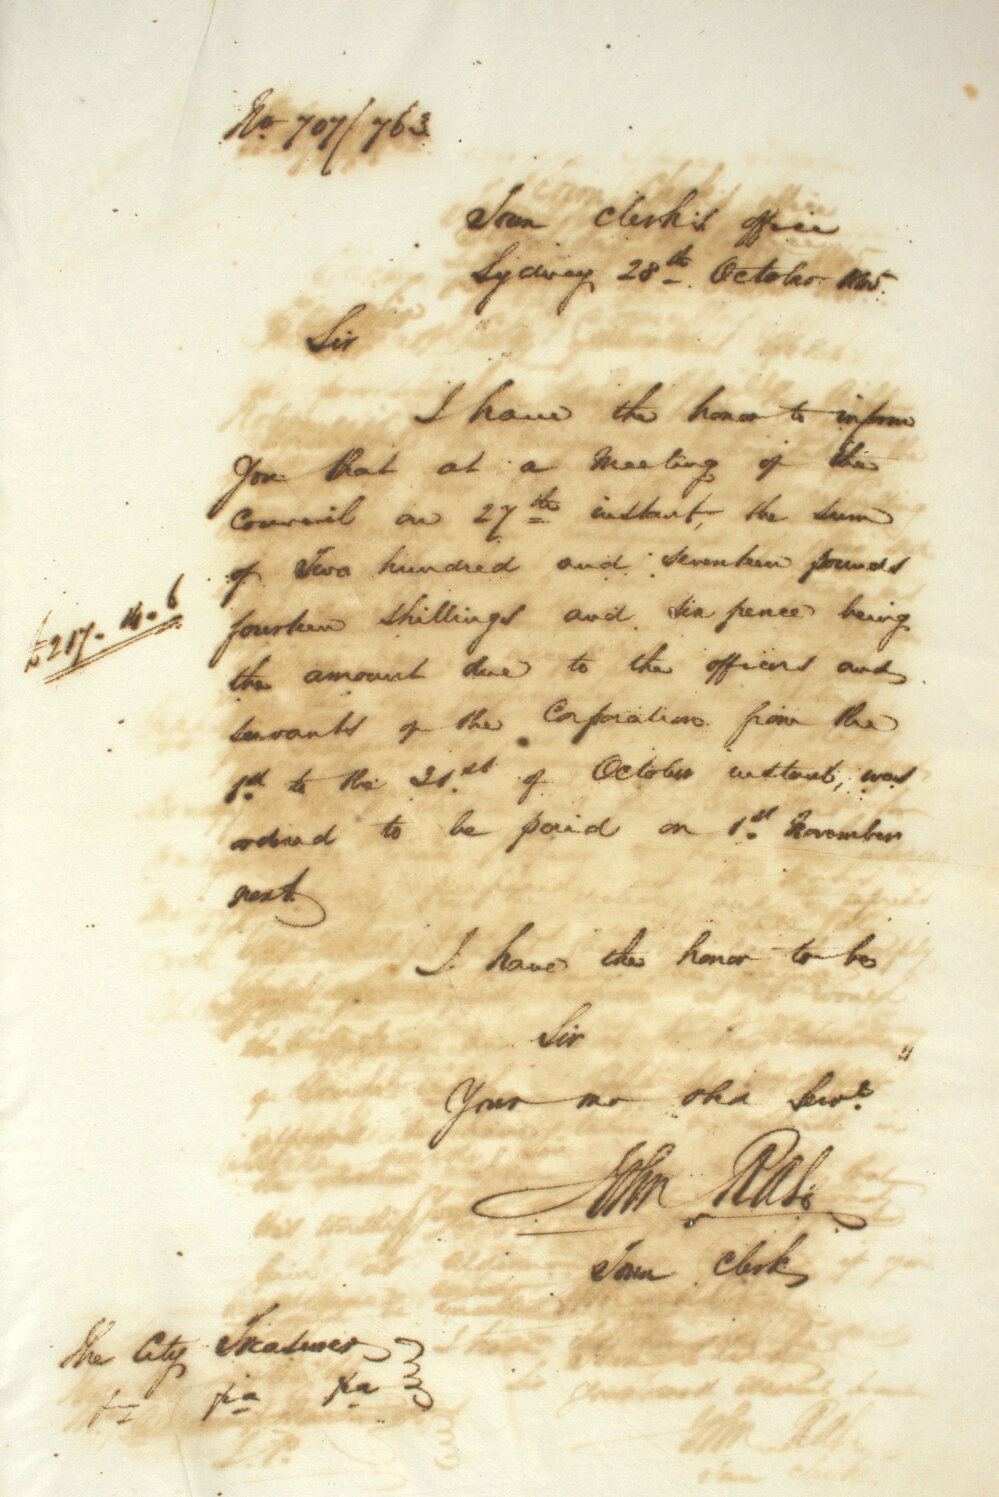 No. 707/763
Town Clerk's Office
Sydney 28th October 1865.
Sir
I have the honor to inform
You that at a Meeting of the
Council on 27th instant, the sum
of Two hundred and seventeen pounds
£217-14-6
fourteen shillings and six pence being
the amount due to the officers and
servants of the Corporation from the
1st to the 31st of October instant, was
ordered to be paid on 1st November
next
I have the honor to be
Sir
Your mo obd Servt
John
Town Clerk
The City Treasurer